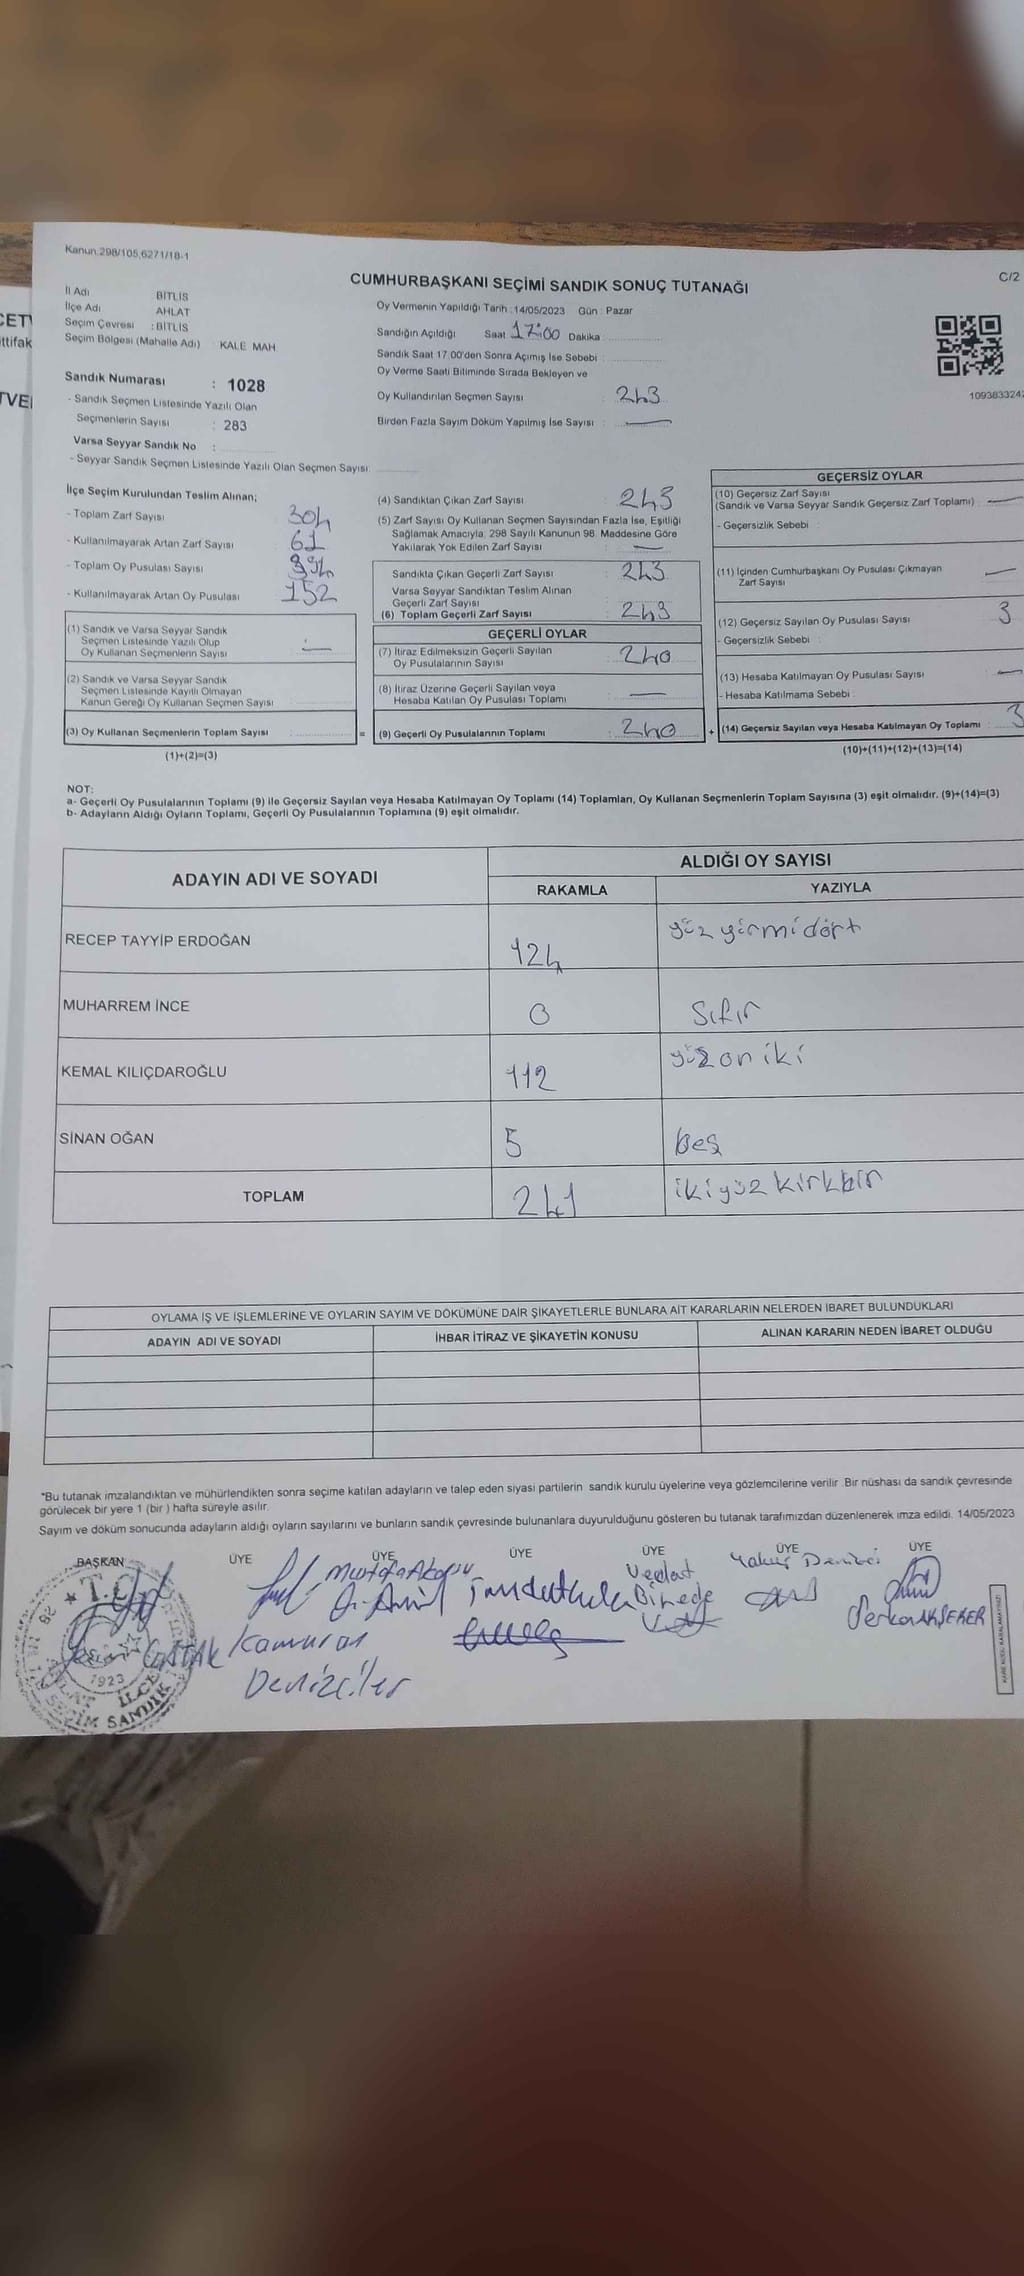 CETV
ttifak
TVEL
Kanun.298/105,6271/18-1
C/2
CUMHURBAŞKANI SEÇİMİ SANDIK SONUÇ TUTANAĞI
İl Adı BİTLİS
İlçe Adı AHLAT
Seçim Çevresi : BİTLİS
Seçim Bölgesi (Mahalle Adı) : KALE MAH
Oy Vermenin Yapıldığı Tarih : 14/05/2023 Gün : Pazar
Sandığın Açıldığı Saat 17:00 Dakika
Sandık Saat 17.00'den Sonra Açımış İse Sebebi
Oy Verme Saati Bitiminde Sırada Bekleyen ve
Oy Kullandırılan Seçmen Sayısı : 243
Birden Fazla Sayım Döküm Yapılmış İse Sayısı : —
109383324
Sandık Numarası : 1028
- Sandık Seçmen Listesinde Yazılı Olan
Seçmenlerin Sayısı : 283
Varsa Seyyar Sandık No :
- Seyyar Sandık Seçmen Listesinde Yazılı Olan Seçmen Sayısı:
İlçe Seçim Kurulundan Teslim Alınan;
- Toplam Zarf Sayısı 304
- Kullanılmayarak Artan Zarf Sayısı 61
- Toplam Oy Pusulası Sayısı
- Kullanılmayarak Artan Oy Pusulası 152
(1) Sandık ve Varsa Seyyar Sandık
Seçmen Listesinde Yazılı Olup
Oy Kullanan Seçmenlerin Sayısı : —
(2) Sandık ve Varsa Seyyar Sandık
Seçmen Listesinde Kayıtlı Olmayan
Kanun Gereği Oy Kullanan Seçmen Sayısı :
(3) Oy Kullanan Seçmenlerin Toplam Sayısı : =
(1)+(2)=(3)
(4) Sandıktan Çıkan Zarf Sayısı : 243
(5) Zarf Sayısı Oy Kullanan Seçmen Sayısından Fazla İse, Eşitliği
Sağlamak Amacıyla, 298 Sayılı Kanunun 98. Maddesine Göre
Yakılarak Yok Edilen Zarf Sayısı : —
Sandıkta Çıkan Geçerli Zarf Sayısı : 243
Varsa Seyyar Sandıktan Teslim Alınan
Geçerli Zarf Sayısı
(6) Toplam Geçerli Zarf Sayısı : 243
GEÇERLİ OYLAR
(7) İtiraz Edilmeksizin Geçerli Sayılan
Oy Pusulalarının Sayısı : 240
(8) İtiraz Üzerine Geçerli Sayılan veya
Hesaba Katılan Oy Pusulası Toplamı : —
(9) Geçerli Oy Pusulalarının Toplamı : 240 +
GEÇERSİZ OYLAR
(10) Geçersiz Zarf Sayısı
(Sandık ve Varsa Seyyar Sandık Geçersiz Zarf Toplamı) : —
- Geçersizlik Sebebi :
(11) İçinden Cumhurbaşkanı Oy Pusulası Çıkmayan
Zarf Sayısı : —
(12) Geçersiz Sayılan Oy Pusulası Sayısı : 3
- Geçersizlik Sebebi :
(13) Hesaba Katılmayan Oy Pusulası Sayısı : —
- Hesaba Katılmama Sebebi :
(14) Geçersiz Sayılan veya Hesaba Katılmayan Oy Toplamı : 3
(10)+(11)+(12)+(13)=(14)
NOT:
a- Geçerli Oy Pusulalarının Toplamı (9) ile Geçersiz Sayılan veya Hesaba Katılmayan Oy Toplamı (14) Toplamları, Oy Kullanan Seçmenlerin Toplam Sayısına (3) eşit olmalıdır. (9)+(14)=(3)
b- Adayların Aldığı Oyların Toplamı, Geçerli Oy Pusulalarının Toplamına (9) eşit olmalıdır.
ADAYIN ADI VE SOYADI
ALDIĞI OY SAYISI
RAKAMLA YAZIYLA
RECEP TAYYİP ERDOĞAN 124 yüz yirmi dört
MUHARREM İNCE 0 Sıfır
KEMAL KILIÇDAROĞLU 112 yüz on iki
SİNAN OĞAN 5 beş
TOPLAM 241 iki yüz kırkbir
OYLAMA İŞ VE İŞLEMLERİNE VE OYLARIN SAYIM VE DÖKÜMÜNE DAİR ŞİKAYETLERLE BUNLARA AİT KARARLARIN NELERDEN İBARET BULUNDUKLARI
ADAYIN ADI VE SOYADI İHBAR İTİRAZ VE ŞİKAYETİN KONUSU ALINAN KARARIN NEDEN İBARET OLDUĞU
*Bu tutanak imzalandıktan ve mühürlendikten sonra seçime katılan adayların ve talep eden siyasi partilerin sandık kurulu üyelerine veya gözlemcilerine verilir. Bir nüshası da sandık çevresinde
görülecek bir yere 1 (bir ) hafta süreyle asılır.
Sayım ve döküm sonucunda adayların aldığı oyların sayılarını ve bunların sandık çevresinde bulunanlara duyurulduğunu gösteren bu tutanak tarafımızdan düzenlenerek imza edildi. 14/05/2023
BAŞKAN ÜYE ÜYE ÜYE ÜYE ÜYE ÜYE
Vedat
Kamuran
Denizciler
Serkan AKŞEKER
T.C.
1923